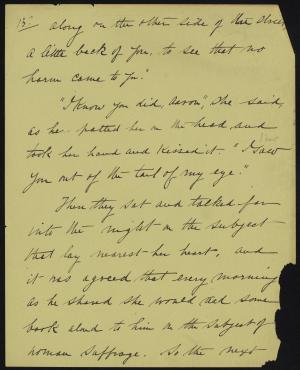 15
along on the other side of the street,
a little back of you, to see that no
harm came to you."
"I know you did, Aaron," she said,
as he patted her on the head and
took her hand and kissed it. "I saw
you out of the tail of my eye."
Then they sat and talked far
into the night on the subject
that lay nearest her heart, and
it was agreed that every morning
as he shaved she would read some
book aloud to him on the subject of
woman suffrage. So the next